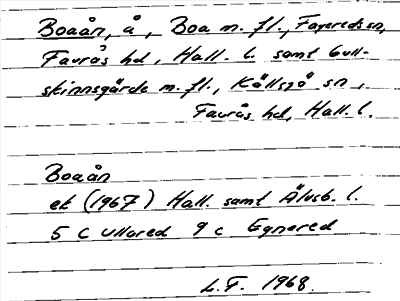 Boaån, å, Boa m. fl., Fagereds sn,
Faurås hd, Hall. l. samt Gull-
skinnsgärde m. fl., Källsjö sn,
Faurås hd, Hall. l.
Boaån
ek (1967) Hall. samt Älvsb. l.
5 C Ullared 9 c Egnared
L.F. 1968.